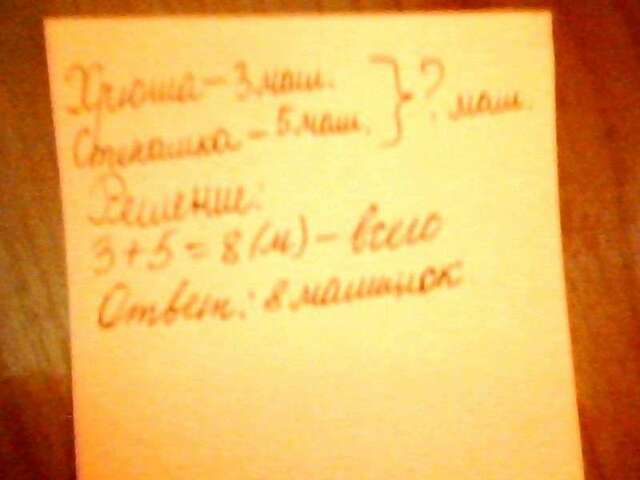 Хрюша – 3 маш. } ? маш.
Степашка – 5 маш.
Решение:
3 + 5 = 8 (м) – всего
Ответ: 8 машинок